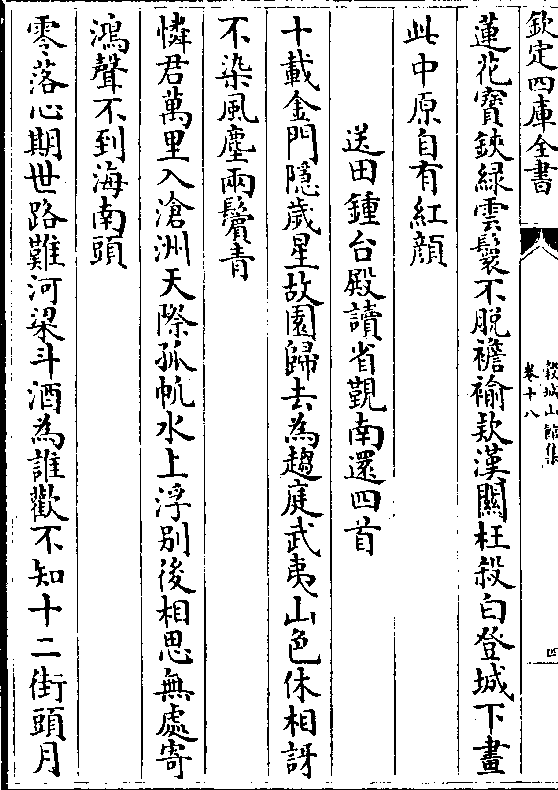 欽定四庫全書
榖城山館集
卷十八
四
蓮花寶鋏緑雲鬟不脫襜褕欵漢關枉殺白登城下畫
此中原自有紅顔
送田鍾台殿讀省覲南還四首
十載金門隱歲星故園歸去為趨庭武夷山色休相訝
不染風塵兩鬢青
憐君萬里入滄洲天際孤帆水上浮别後相思無處寄
鴻聲不到海南頭
零落心期世路難河梁斗酒為誰歡不知十二街頭月